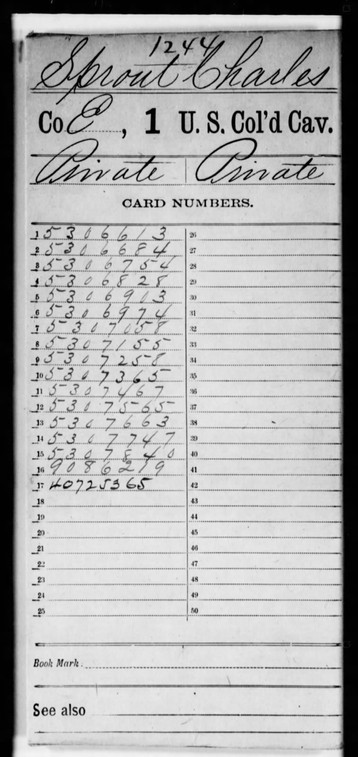 1244
Sprout Charles
Co E, 1 U. S. Col'd Cav.
Private | Private
CARD NUMBERS.
1 5306613 26
2 5306684 27
3 5306754 28
4 5306828 29
5 5306903 30
6 5306974 31
7 5307058 32
8 5307155 33
9 5307258 34
10 5307365 35
11 5307467 36
12 5307565 37
13 5307663 38
14 5307747 39
15 5307840 40
16 9086219 41
17 40725365 42
18 43
19 44
20 45
21 46
22 47
23 48
24 49
25 50
Book Mark:
See also